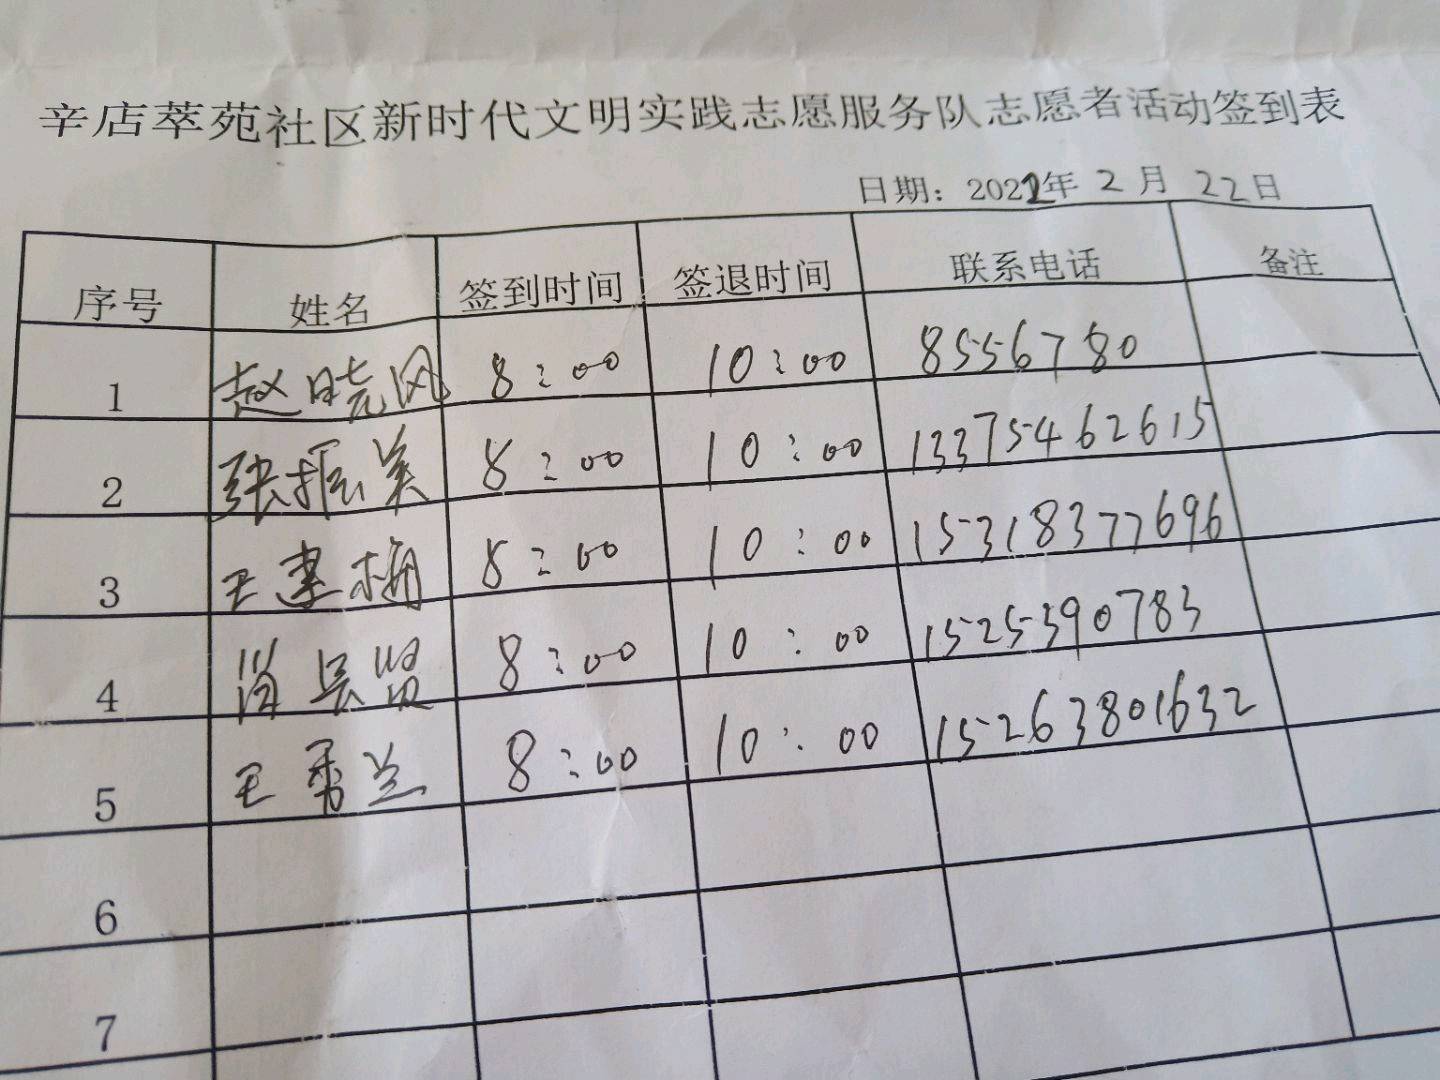 辛店萃苑社区新时代文明实践志愿服务队志愿者活动签到表
日期：2022年 2 月 22日
序号 姓名 签到时间 签退时间 联系电话 备注
1 赵晓风 8:00 10:00 8556780
2 张振美 8:00 10:00 13375462615
3 王建梅 8:00 10:00 15318377696
4 8:00 10:00 15253390783
5 王秀兰 8:00 10:00 15263801632
6
7